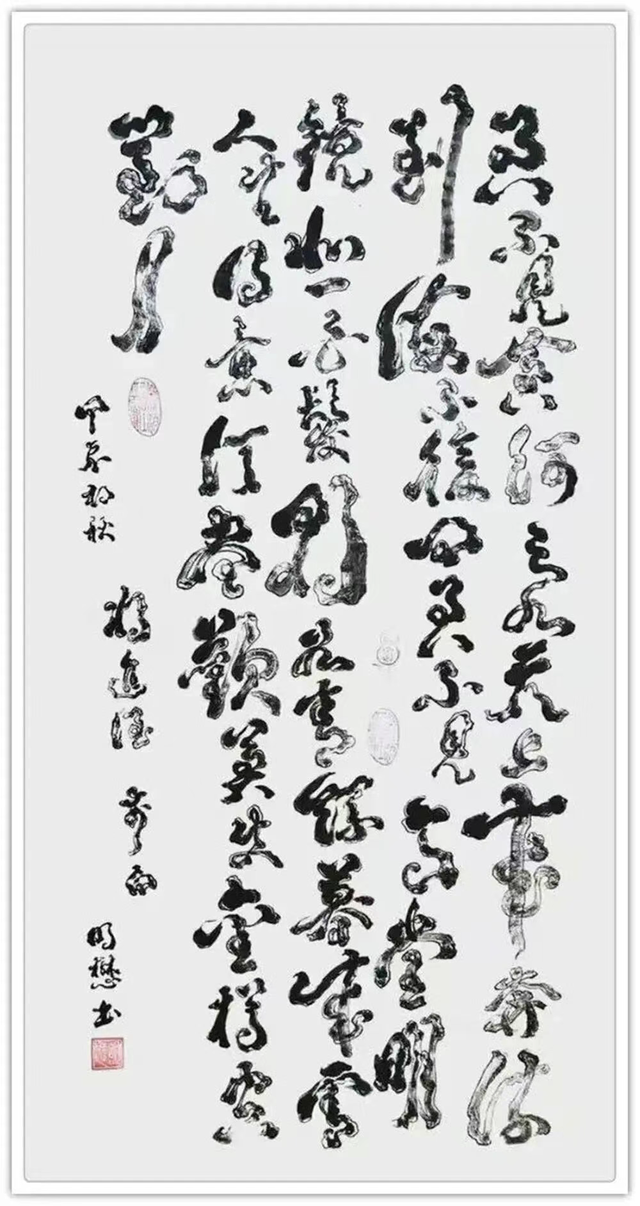 君不見黄河之水天上來奔流
到海不復回君不見高堂明
鏡悲白髮朝如青絲暮成雪
人生得意須盡歡莫使金樽空
對月
甲辰初秋 将進酒 明懋书